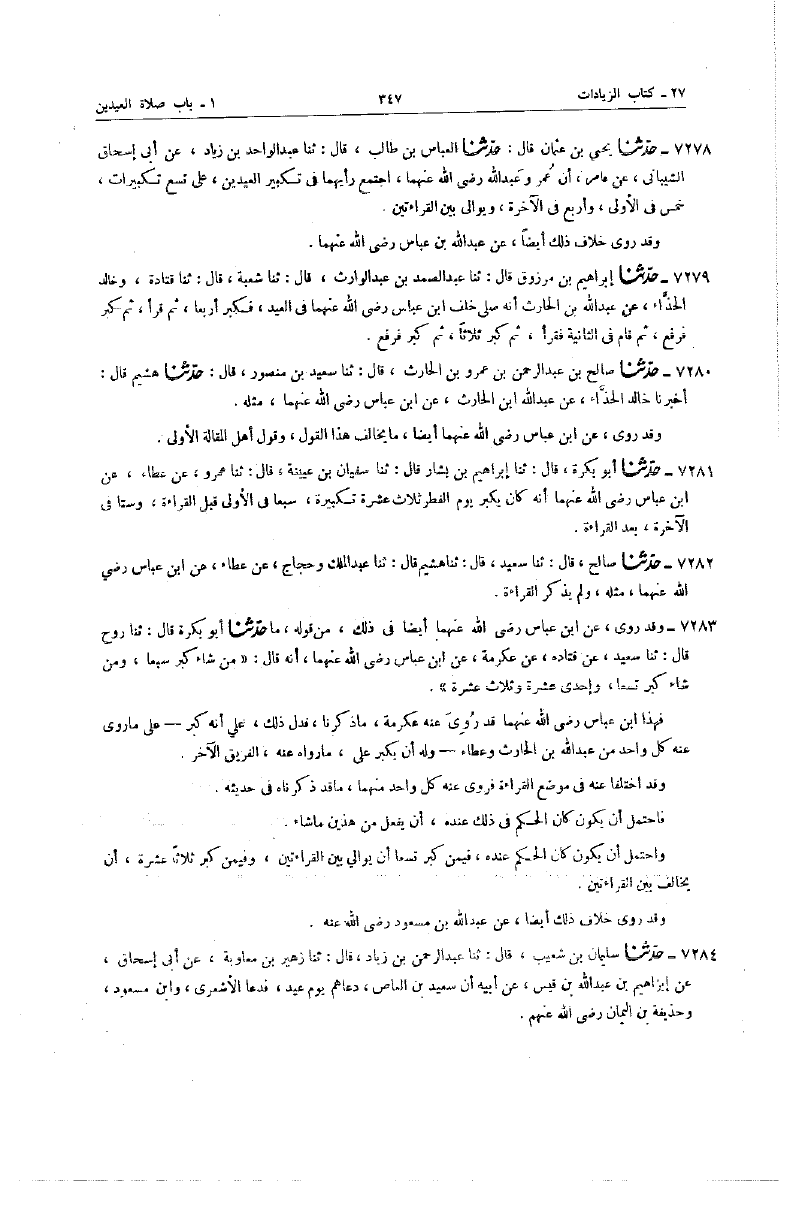 ٢٧ ـ كتاب الزيادات ٣٤٧ ١ ـ باب صلاة العيدين
٧٢٧٨ ـ حدّثنا يحيى بن عثمان قال : حدّثنا العباس بن طالب ، قال : ثنا عبدالواحد بن زياد ، عن أبى إسحاق
الشيبانى ، عن عامر ، أن عُمر وعبدالله رضى الله عنهما ، اجتمع رأيهما فى تكبير العيدين ، على تسع تكبيرات ،
خمس فى الأولى ، وأربع فى الآخرة ، ويوالى بين القراءتين .
وقد روى خلاف ذلك أيضاً ، عن عبدالله بن عباس رضى الله عنهما .
٧٢٧٩ ـ حدّثنا إبراهيم بن مرزوق قال : ثنا عبدالصمد بن عبدالوارث ، قال : ثنا شعبة ، قال : ثنا قتادة ، وخالد
الحذَّاء ، عن عبدالله بن الحارث أنه صلى خلف ابن عباس رضى الله عنهما فى العيد ، فكبر أربعا ، ثم قرأ ، ثم كبر
فرفع ، ثم قام فى الثانية فقرأ ، ثم كبر ثلاثاً ، ثم كبر فرفع .
٧٢٨٠ ـ حدّثنا صالح بن عبدالرحمن بن عمرو بن الحارث ، قال : ثنا سعيد بن منصور ، قال : حدّثنا هشيم قال :
أخبرنا خالد الحذَّاء ، عن عبدالله ابن الحارث ، عن ابن عباس رضى الله عنهما ، مثله .
وقد روى ، عن ابن عباس رضى الله عنهما أيضا ، مايخالف هذا القول ، وقول أهل المقالة الأولى .
٧٢٨١ ـ حدّثنا أبو بكرة ، قال : ثنا إبراهيم بن بشار قال : ثنا سفيان بن عيينة ، قال : ثنا عمرو ، عن عطاء ، عن
ابن عباس رضى الله عنهما أنه كان يكبر يوم الفطر ثلاث عشرة تكبيرة ، سبعا فى الأولى قبل القراءة ، وستا فى
الآخرة ، بعد القراءة .
٧٢٨٢ ـ حدّثنا صالح ، قال : ثنا سعيد ، قال : ثنا هشيم قال : ثنا عبدالملك وحجاج ، عن عطاء ، عن ابن عباس رضي
الله عنهما ، مثله ، ولم يذكر القراءة .
٧٢٨٣ ـ وقد روى ، عن ابن عباس رضى الله عنهما أيضا فى ذلك ، من قوله ، ما حدّثنا أبو بكرة قال : ثنا روح
قال : ثنا سعيد ، عن قتاده ، عن عكرمة ، عن ابن عباس رضى الله عنهما ، أنه قال : « من شاء كبر سبعا ، ومن
شاء كبر تسعا ، وإحدى عشرة وثلاث عشرة » .
فهذا ابن عباس رضى الله عنهما قد رُوِىَ عنه عكرمة ، ماذكرنا ، فدل ذلك ، علي أنه كبر — على ماروى
عنه كل واحد من عبدالله بن الحارث وعطاء — وله أن يكبر على ، مارواه عنه ، الفريق الآخر .
وقد اختلفا عنه فى موضع القراءة فروى عنه كل واحد منهما ، ماقد ذكرناه فى حديثه .
فاحتمل أن يكون كان الحكم فى ذلك عنده ، أن يفعل من هذين ماشاء .
واحتمل أن يكون كان الحكم عنده ، فيمن كبر تسعا أن يوالى بين القراءتين ، وفيمن كبر ثلاثَ عشرة ، أن
يخالف بين القراءتين .
وقد روى خلاف ذلك أيضا ، عن عبدالله بن مسعود رضى الله عنه .
٧٢٨٤ ـ حدّثنا سليمان بن شعيب ، قال : ثنا عبدالرحمن بن زياد ، قال : ثنا زهير بن معاوية ، عن أبى إسحاق ،
عن إبراهيم بن عبدالله بن قيس ، عن أبيه أن سعيد بن العاص ، دعاهم يوم عيد ، فدعا الأشعرى ، وابن مسعود ،
وحذيفة بن اليمان رضى الله عنهم .